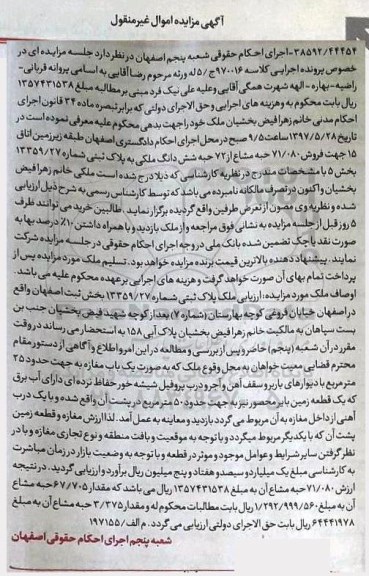 آگهی مزایده اموال غیرمنقول
۳۸۵۹۲/۴۴۴۵۴-اجرای احکام حقوقی شعبه پنجم اصفهان در نظر دارد جلسه مزایده ای در
خصوص پرونده اجرایی کلاسه ۹۷۰۰۱۶ج/۵ له ورثه مرحوم رضا آقایی به اسامی پروانه قربانی-
راضیه-بهاره-الهه شهرت همگی آقایی و علیه علی نیک فرد مبنی بر مطالبه مبلغ ۱۳۵۷۴۳۱۵۳۸
ریال بابت محکوم به و هزینه های اجرایی و حق الاجرای دولتی که برابر تبصره ماده ۳۴ قانون اجرای
احکام مدنی خانم زهرا فیض بخشیان ملک خود را جهت بدهی محکوم علیه معرفی نموده است در
تاریخ ۱۳۹۷/۵/۲۸ ساعت ۹/۵ صبح در محل اجرای احکام دادگستری اصفهان طبقه زیرزمین اتاق
۱۵ جهت فروش ۷۱/۰۸۰ حبه مشاع از ۷۲ حبه شش دانگ ملکی به پلاک ثبتی شماره ۱۳۳۵۹/۲۷
بخش ۵ با مشخصات مندرج در نظریه کارشناسی که ذیلا درج شده است ملکی خانم زهرا فیض
بخشیان و اکنون در تصرف مالکانه نامبرده می باشد که توسط کارشناس رسمی به شرح ذیل ارزیابی
شده و نظریه وی مصون از تعرض طرفین واقع گردیده برگزار نماید. طالبین خرید می توانند ظرف
۵ روز قبل از جلسه مزایده به نشانی فوق مراجعه و از ملک بازدید و با همراه داشتن ۱۰٪ درصد بها به
صورت نقد یا چک تضمین شده بانک ملی در وجه اجرای احکام حقوقی در جلسه مزایده شرکت
نمایند. پیشنهاد دهنده بالاترین قیمت برنده مزایده خواهد بود. تسلیم ملک مورد مزایده پس از
پرداخت تمام بهای آن صورت خواهد گرفت و هزینه های اجرایی بر عهده محکوم علیه می باشد.
اوصاف ملک مورد مزایده: ارزیابی ملک پلاک ثبتی شماره ۱۳۳۵۹/۲۷ بخش ثبت اصفهان واقع
در اصفهان خیابان فروغی کوچه بهارستان (شماره ۷) بعد از کوچه شهید فیض بخشیان جنب بن
بست سپاهان به مالکیت خانم زهرا فیض بخشیان پلاک آبی ۱۵۸ به استحضار می رساند در وقت
مقرر در آن شعبه (پنجم) حاضر و پس از بررسی و مطالعه در این امر و اطلاع و آگاهی از دستور مقام
محترم قضایی معیت خواهان به محل وقوع ملک که به صورت یک باب مغازه به جهت حدود ۳۵
مترمربع با دیوارهای باربر و سقف آهن و آجر و درب پروفیل شیشه خور حفاظ نرده ای دارای آب برق
که یک قطعه زمین بایر محصور نیز به جهت حدود ۵۰ مترمربع در پشت آن واقع شده و با یک درب
آهنی از داخل مغازه به آن مربوط می گردد بازدید و معاینه به عمل آمد. لذا ارزش مغازه و قطعه زمین
پشت آن که با یکدیگر مربوط میگردد و با توجه به موقعیت و بافت منطقه و نوع تجاری مغازه و با در
نظر گرفتن سایر شرایط و عوامل موجود و موثر در قطعه و با توجه به وضعیت بازار در زمان مباشرت
به کارشناسی مبلغ یک میلیارد و سیصد و هفتاد و پنج میلیون ریال برآورد و ارزیابی گردید. در نتیجه
ارزش ۷۱/۰۸۰ حبه مشاع آن به مبلغ ۱۳۵۷۴۳۱۵۳۸ ریال می باشد که مقدار ۶۷/۷۰۵ حبه مشاع
آن به مبلغ ۱/۲۹۲/۹۹۹/۵۶۰ ریال بابت مطالبات محکوم له و مقدار ۳/۳۷۵ حبه مشاع آن به مبلغ
۶۴۴۴۱۹۷۸ ریال بابت حق الاجرای دولتی ارزیابی می گردد. م الف/۱۹۷۱۵۵
شعبه پنجم اجرای احکام حقوقی اصفهان